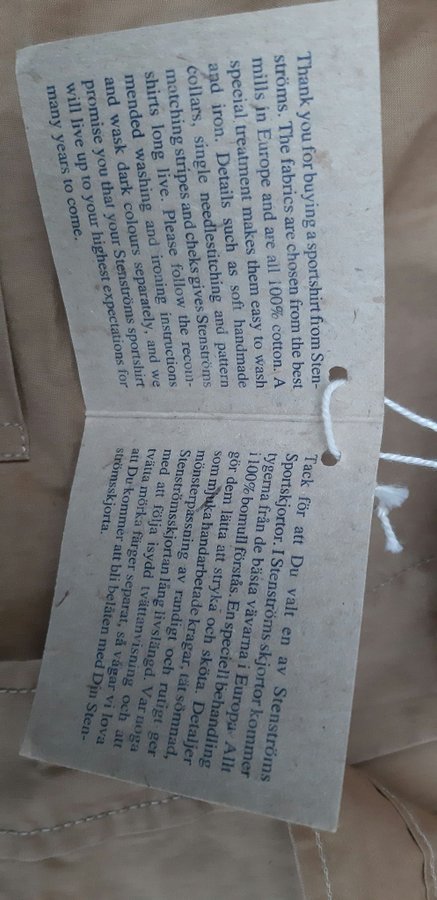 Thank you for buying a sportshirt from Sten-
ströms. The fabrics are chosen from the best
mills in Europe and are all 100% cotton. A
special treatment makes them easy to wash
and iron. Details such as soft handmade
collars, single needlestitching and pattern
matching stripes and cheks gives Stenströms
shirts long live. Please follow the recom-
mended washing and ironing instructions
and wask dark colours separately, and we
promise you that your Stenströms sportshirt
will live up to your highest expectations for
many years to come.
Tack för att Du valt en av Stenströms
Sportskjortor. I Stenströms skjortor kommer
tygerna från de bästa vävarna i Europa. Allt
i 100% bomull förstås. En speciell behandling
gör dem lätta att stryka och sköta. Detaljer
som mjuka handarbetade kragar, tät sömnad,
mönsterpassning av randigt och rutigt ger
Stenströmsskjortan lång livslängd. Var noga
med att följa isydd tvättanvisning och att
tvätta mörka färger separat, så vågar vi lova
att Du kommer att bli belåten med Din Sten-
strömsskjorta.